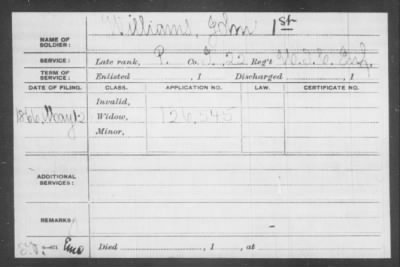 NAME OF SOLDIER: Williams, John 1st
SERVICE: Late rank, P. Co. , 22 Reg't U.S.C. Inf.
TERM OF SERVICE: Enlisted , 1 Discharged , 1
DATE OF FILING. CLASS. APPLICATION NO. LAW. CERTIFICATE NO.
Invalid,
1866 May 12 Widow, 126,545
Minor,
ADDITIONAL SERVICES:
REMARKS:
Died , 1 , at